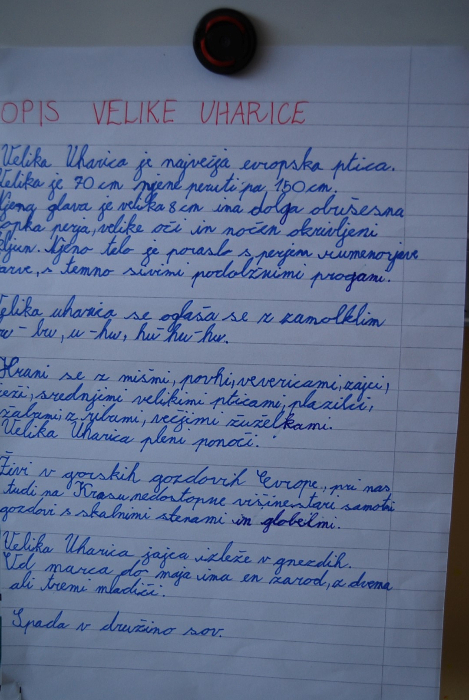 OPIS VELIKE UHARICE
Velika Uharica je največja evropska ptica.
Velika je 70 cm njene peruti pa 150 cm.
Njena glava je velika 8 cm ima dolga obušesna
topka perja, velike oči in močen okrivljeni
kljun. Njeno telo je poraslo s perjem rumenorjave
barve, s temno sivimi podolžnimi progami.
Velika uharica se oglaša se z zamolklim
bu-hu, u-hu, hu-hu-hu.
Hrani se z mišmi, povhi, vevericami, zajci,
ježi, srednjimi velikimi pticami, plazilci,
žabami z ribami, večjimi žuželkami.
Velika Uharica pleni ponoči.
Živi v gorskih gozdovih Evrope, pri nas
tudi na Krasu, nedostopne višine stari samotni
gozdovi s skalnimi stenami in globelmi.
Velika Uharica jajca izleže v gnezdih.
Od marca do maja ima en zarod, z dvema
ali tremi mladiči.
Spada v družino sov.